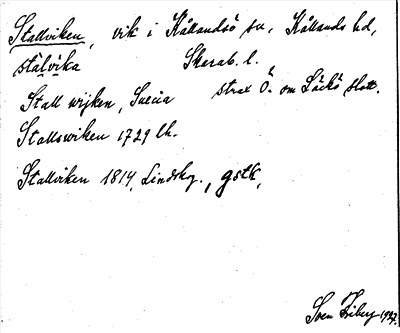 Stallviken, vik i Kållandsö sn, Kållands hd,
stálvika Skarab. l.
Stall wijken, Suecia strax Ö. om Läckö slott.
Stallswiken 1729 lh.
Stallviken 1814, Lindskog., gstk,
Sven Friberg 1927.